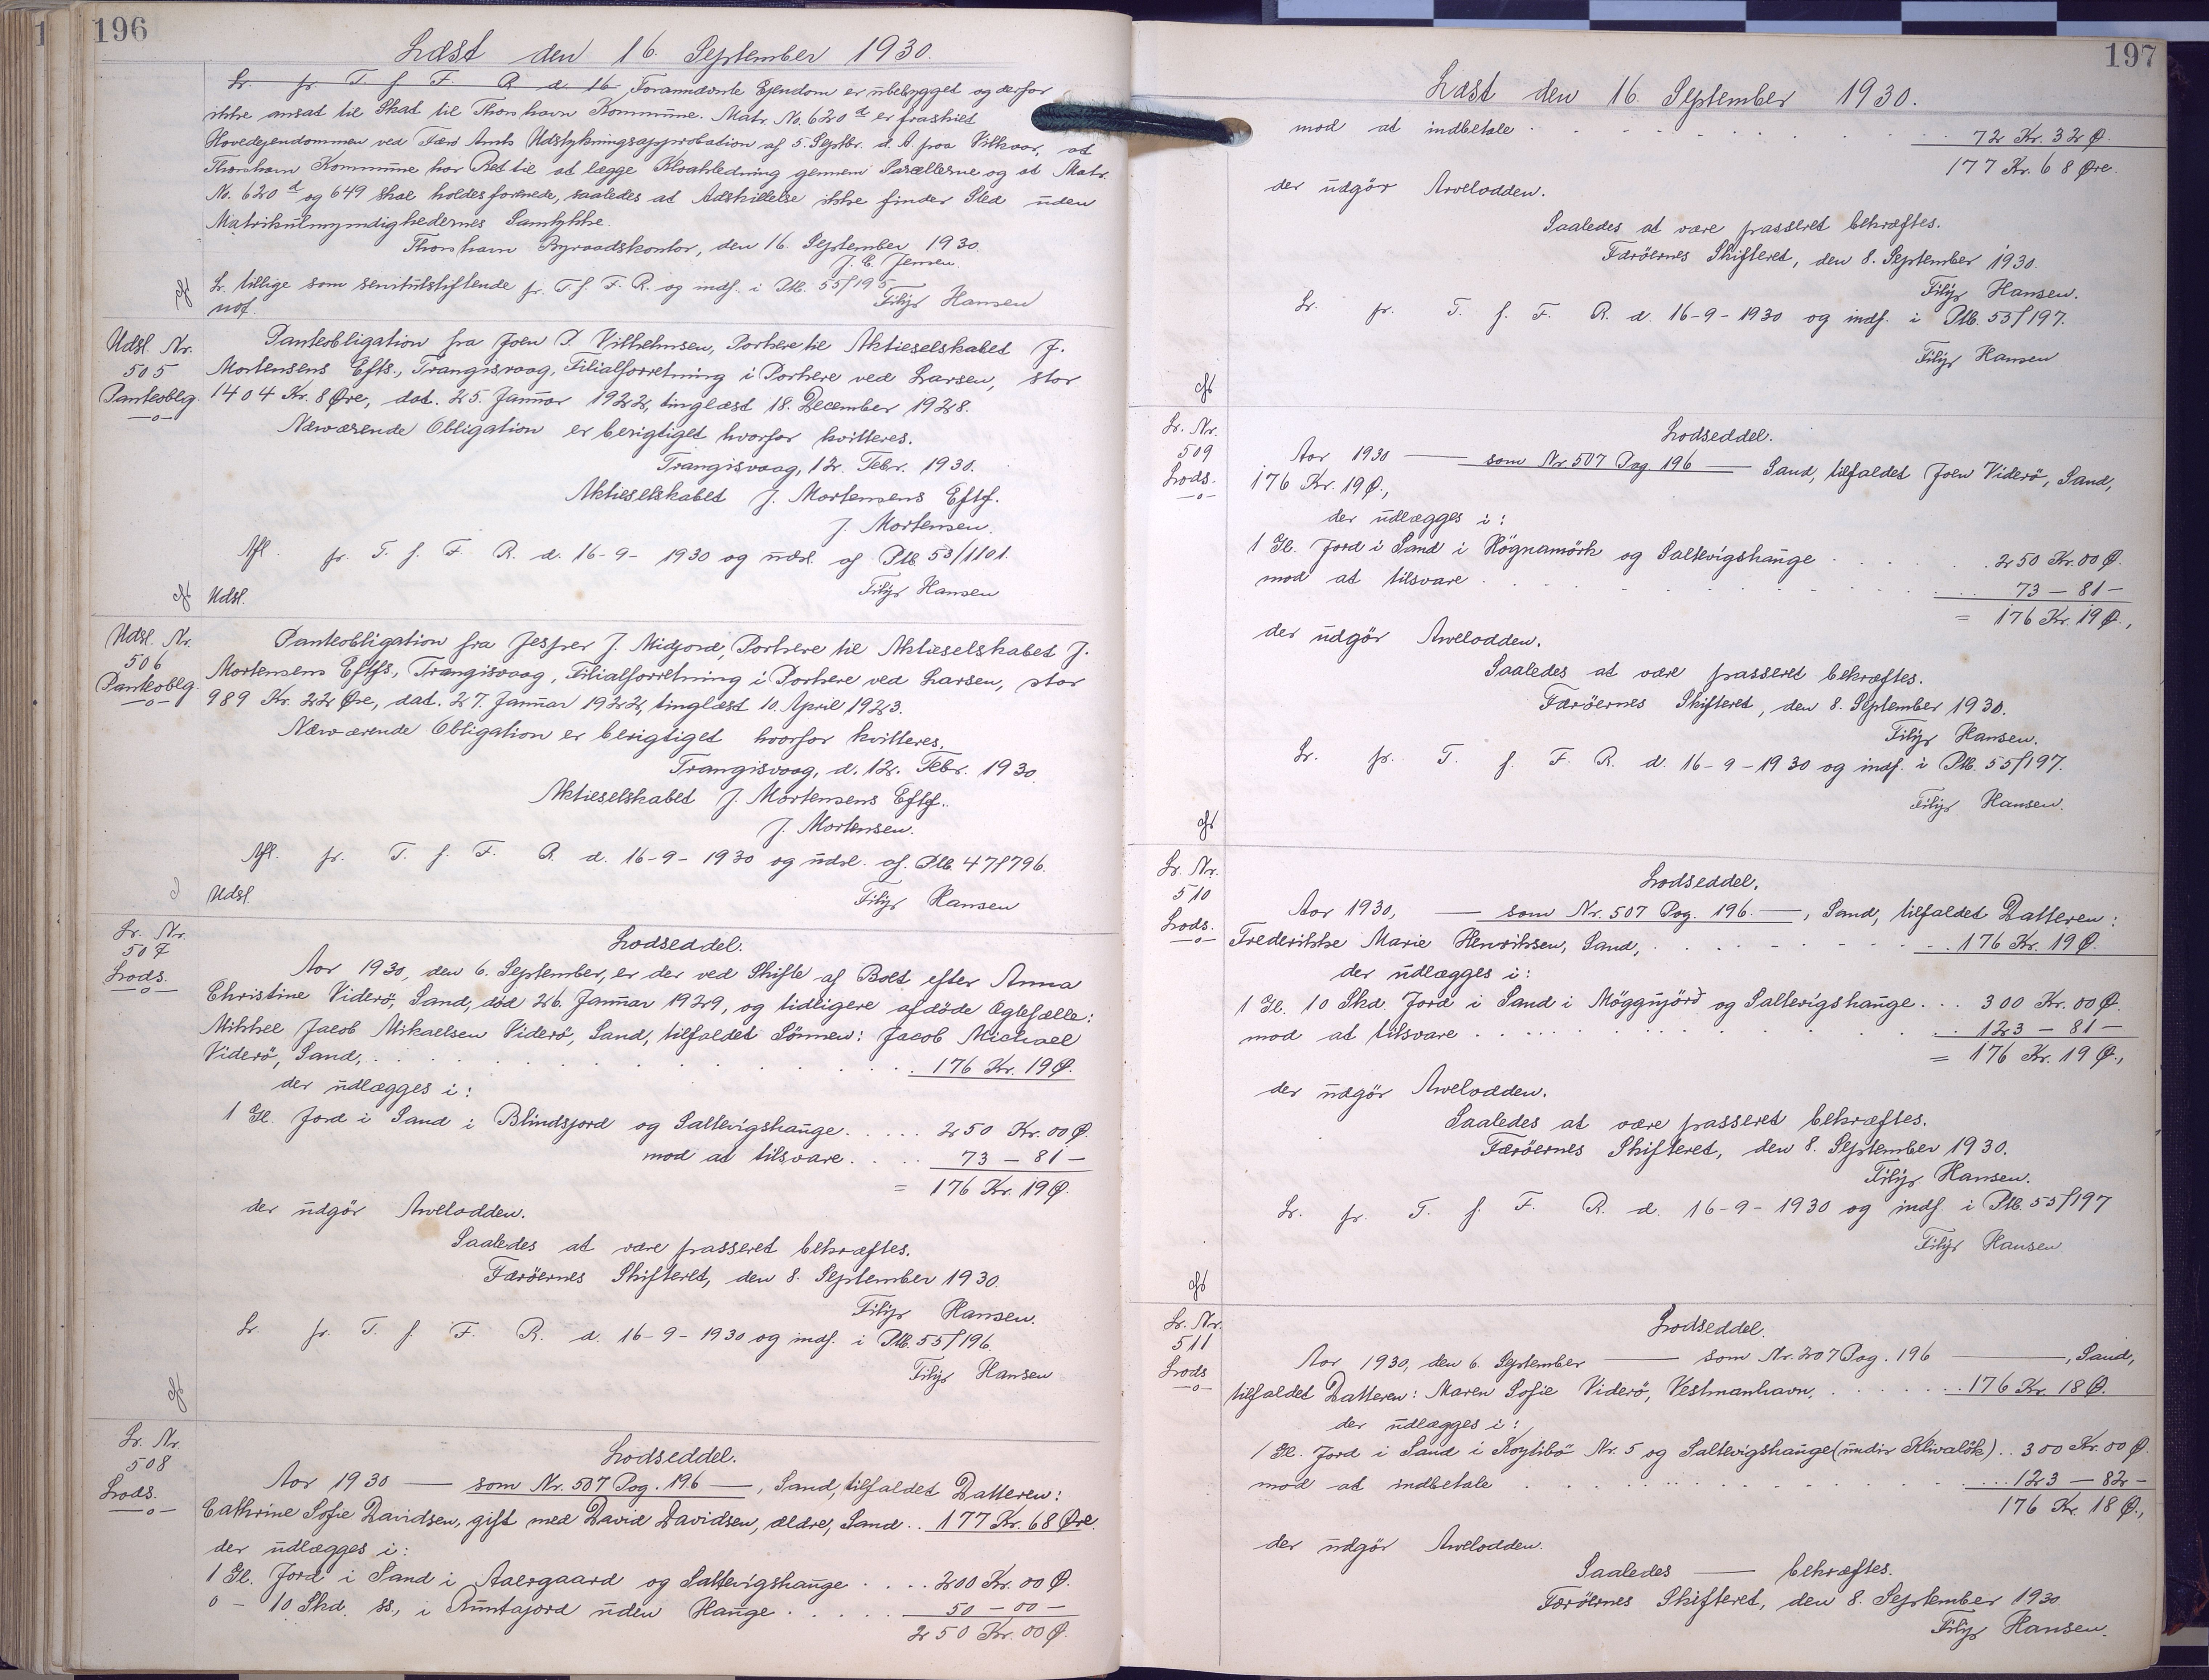 196
Læst den 16. September 1930.
Lr. pr. T. f. F. R. d. 16 Forannævnte Ejendom er ubebygget og derfor
ikke ansat til Skat til Thorshavn Kommune. Matr. No. 620 d er fraskilt
Hovedejendommen ved Færø Amts Udstykningsapprobation af 5. Septbr. d. A. paa Vilkaar, at
Thorshavn Kommune har Ret til at lægge Kloakledning gennem Parcellerne og at Matr.
No. 620 d og 649 skal holdes forenede, saaledes at Adskillelse ikke finder Sted uden
Matrikulmyndighedernes Samtykke.
Thorshavn Byraadskontor, den 16. September 1930.
J. C. Jensen.
Lr. tillige som servitutstiftende pr. T. f. F. R. og indf. i Ptb. 55/195
Filip Hansen
Udsl. Nr.
505
Panteoblg.
Panteobligation fra Joen P. Vilhelmsen, Porkere til Aktieselskabet J.
Mortensens Eftf., Trangisvaag, Filialforretning i Porkere ved Larsen, stor
1404 Kr. 8 Øre, dat. 25. Januar 1922, tinglæst 18. December 1928.
Nærværende Obligation er berigtiget hvorfor kvitteres.
Trangisvaag, 12. Febr. 1930.
Aktieselskabet J. Mortensens Eftf.
J. Mortensen.
Afl. pr. T. f. F. R. d. 16-9-1930 og udsl. af Ptb. 53/1101.
Filip Hansen
Udsl.
Udsl. Nr.
506
Panteoblg.
Panteobligation fra Jesper J. Midjord, Porkere til Aktieselskabet J.
Mortensens Eftfs, Trangisvaag, Filialforretning i Porkere ved Larsen, stor
989 Kr. 22 Øre, dat. 27. Januar 1922, tinglæst 10. April 1923.
Nærværende Obligation er berigtiget hvorfor kvitteres.
Trangisvaag, d. 12. Febr. 1930.
Aktieselskabet J. Mortensens Eftf..
J. Mortensen.
Afl. pr. T. f. F. R. d. 16-9-1930 og udsl. af. Ptb. 47/796.
Udsl. Filip Hansen
Lr. Nr.
507
Lods.
Lodseddel.
Aar 1930, den 6. September, er der ved Skifte af Boet efter Anna
Christine Viderö, Sand, død 26. Januar 1929, og tidligere afdøde Ægtefælle:
Mikkel Jacob Mikaelsen Viderö, Sand, tilfaldet Sönnen: Jacob Michael
Viderö, Sand, . . . 176 Kr. 19 Ø.
der udlægges i:
1 Gl. Jord i Sand i Blindsjord og Saltvigshauge. . . . . 250 Kr. 00 Ø.
mod at tilsvare. . . . 73 — 81 —
= 176 Kr. 19 Ø.
der udgör Arvelodden.
Saaledes at være passeret bekræftes.
Færöernes Skifteret, den 8. September 1930.
Filip Hansen.
Lr. pr. T. f. F. R. d. 16-9-1930 og indf. i Ptb. 55/196.
Filip Hansen
Lr. Nr.
508
Lods.
Lodseddel.
Aar 1930 — som Nr. 507 Pag. 196 —, Sand, tilfaldet Datteren:
Cathrine Sofie Davidsen, gift med David Davidsen, ældre, Sand . . 177 Kr. 68 Øre.
der udlægges i:
1 Gl. Jord i Sand i Aalrgaard og Saltvigshauge . . . . 200 Kr. 00 Ø.
0 — 10 Skd. ss., i Runtajord uden Hauge . . . . . 50 — 00 —
250 Kr. 00 Ø.
197
Læst den 16. September 1930.
mod at indbetale . . . 72 Kr. 32 Ø.
177 Kr. 68 Øre.
der udgör Arvelodden.
Saaledes at være passeret bekræftes.
Færöernes Skifteret, den 8. September 1930.
Filip Hansen.
Lr. pr. T. f. F. R. d. 16-9-1930 og indf. i Ptb. 55/197.
Filip Hansen
Lr. Nr.
509
Lods.
Lodseddel.
Aar 1930 — som Nr. 507 Pag 196 — Sand, tilfaldet Joen Viderö, Sand,
176 Kr. 19 Ø.,
der udlægges i:
1 Gl. Jord i Sand i Högnamörk og Saltvigshauge . . . 250 Kr. 00 Ø.
mod at tilsvare . . . 73 — 81 —
= 176 Kr. 19 Ø.,
der udgör Arvelodden.
Saaledes at være passeret bekræftes.
Færöernes Skifteret, den 8. September 1930.
Filip Hansen.
Lr. pr. T. f. F. R. d. 16-9-1930 og indf. i Ptb. 55/197.
Filip Hansen.
Lr. Nr.
510
Lods.
Lodseddel.
Aar 1930, — som Nr. 507 Pag. 196. —, Sand, tilfaldet Datteren:
Frederikke Marie Henriksen, Sand, . . . 176 Kr. 19 Ø.
der udlægges i:
1 Gl. 10 Skd. Jord i Sand i Möggujörd og Saltvigshauge . . . 300 Kr. 00 Ø.
mod at tilsvare . . . 123 — 81 —
= 176 Kr. 19 Ø.,
der udgör Arvelodden.
Saaledes at være passeret bekræftes.
Færöernes Skifteret, den 8. September 1930.
Filip Hansen.
Lr. pr. T. f. F. R. d. 16-9-1930 og indf. i Ptb. 55/197
Filip Hansen
Lr. Nr.
511
Lods
Lodseddel.
Aar 1930, den 6. September — som Nr. 207 Pag. 196 —, Sand,
tilfaldet Datteren: Maren Sofie Viderö, Vestmanhavn, . . . 176 Kr 18 Ø.
der udlægges i:
1 Gl. Jord i Sand i Koytibö Nr. 5 og Saltvigshauge (undir Klivalök) . . 300 Kr. 00 Ø.
mod at indbetale . . . 123 — 82 —
176 Kr. 18 Ø.,
der udgör Arvelodden.
Saaledes — bekræftes.
Færöernes Skifteret, den 8. September 1930.
Filip Hansen.